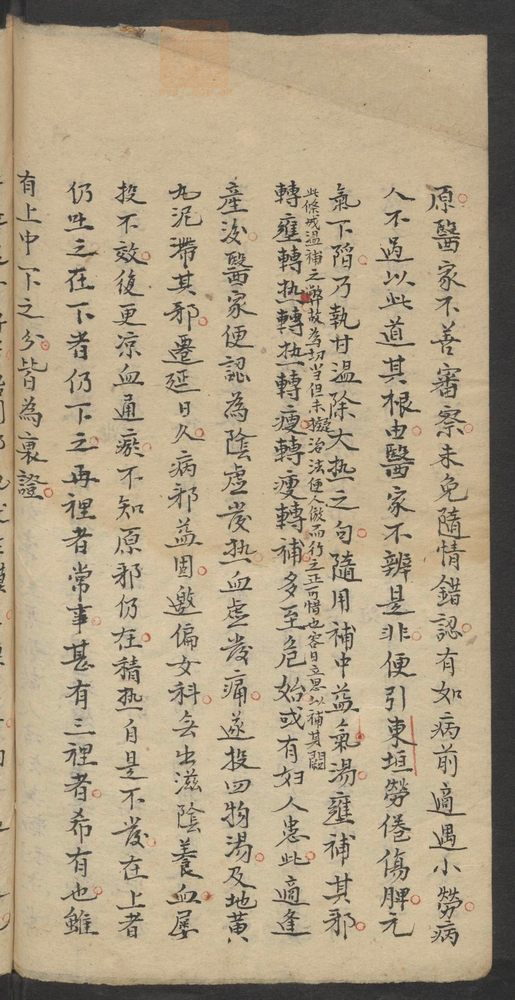 原醫家不善審察未免隨情錯認有如病前適遇小勞病
人不過以此道其根由醫家不辨是非便引東垣勞倦傷脾元
氣下陷乃執甘温除大热之句隨用補中益氣湯壅補其邪
此條戒温補之弊故為切當但未擬治法使人倣而行之正可惜也容日立思以補其闕
轉壅轉热轉热轉瘦轉瘦轉補多至危始或有妇人患此適逢
產後醫家便認為陰虚發热血虚發痛遂投四物湯及地黄
丸泥滯其邪遷延日久病邪益固邀偏女科無出滋陰養血屡
投不效復更凉血通瘀不知原邪仍在積热自是不發在上者
仍吐之在下者仍下之再裡者常事甚有三裡者希有也雖
有上中下之分皆為裏證